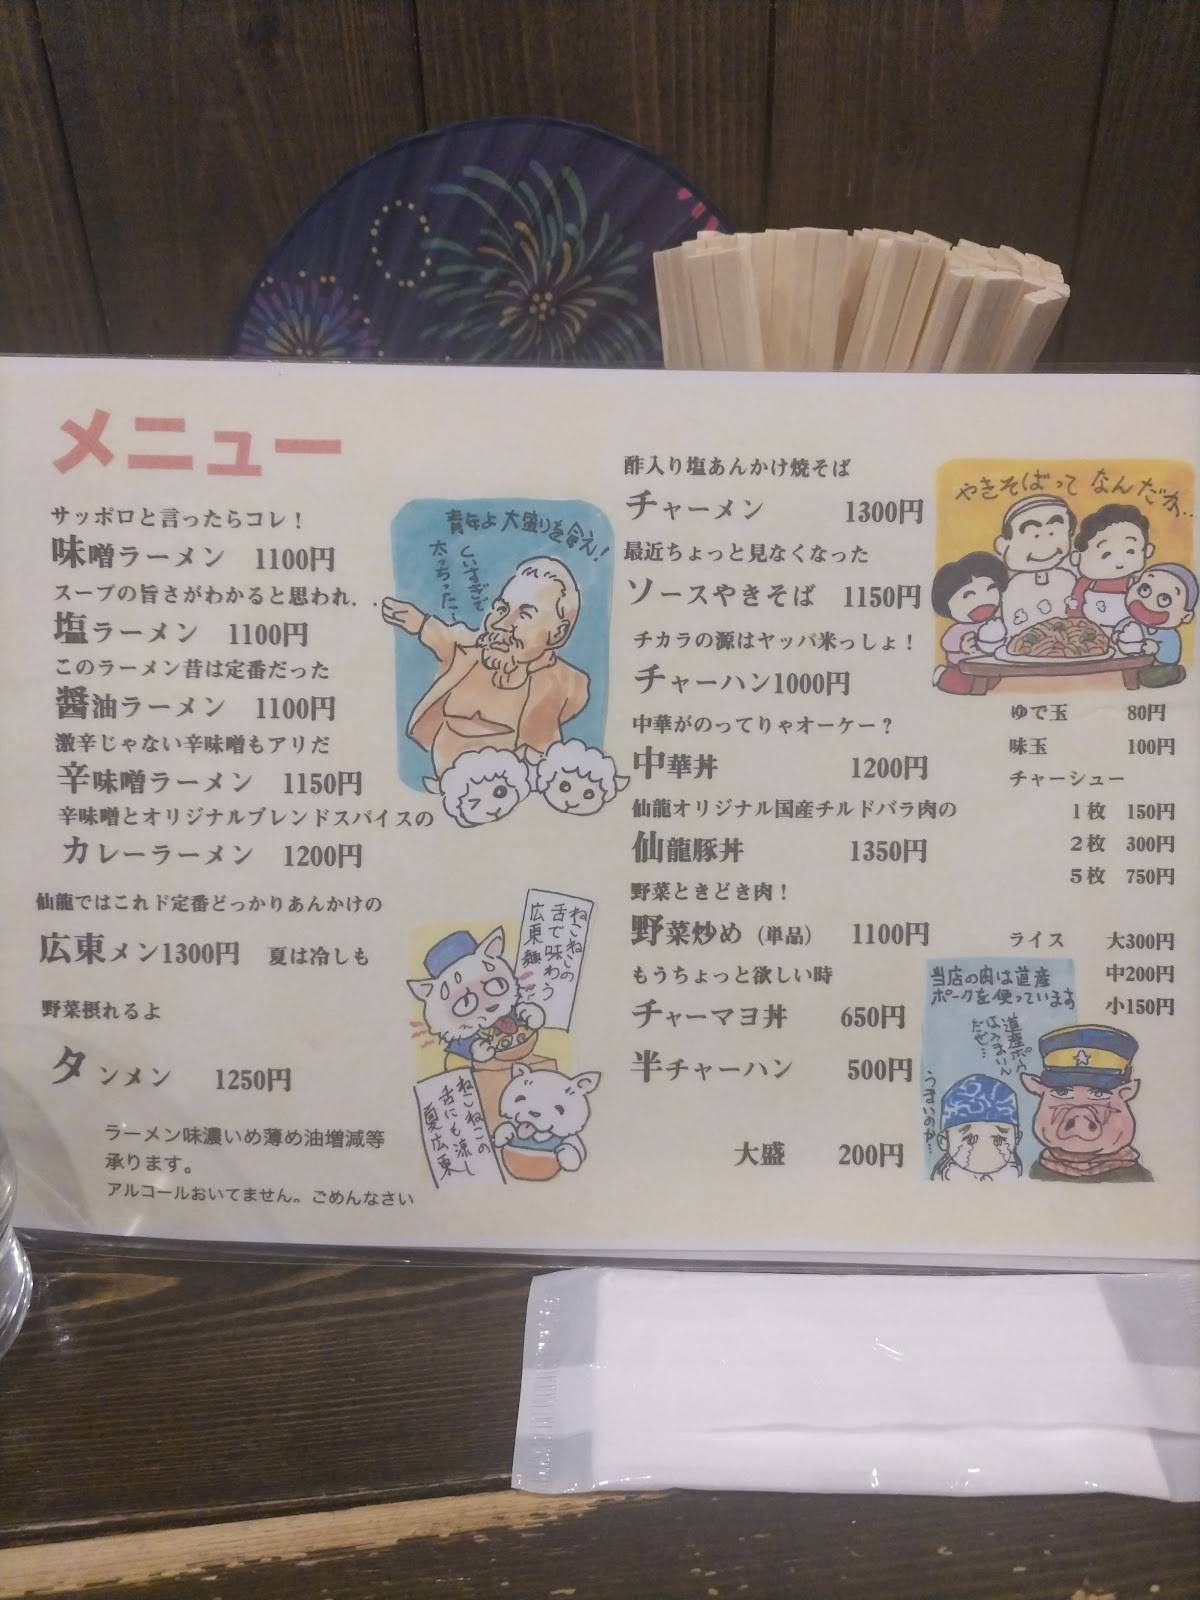 メニュー
サッポロと言ったらコレ！
味噌ラーメン 1100円
スープの旨さがわかると思われ．．
塩ラーメン 1100円
このラーメン昔は定番だった
醤油ラーメン 1100円
激辛じゃない辛味噌もアリだ
辛味噌ラーメン 1150円
辛味噌とオリジナルブレンドスパイスの
カレーラーメン 1200円
仙龍ではこれド定番どっかりあんかけの
広東メン1300円 夏は冷しも
野菜摂れるよ
タンメン 1250円
ラーメン味濃いめ薄め油増減等
承ります。
アルコールおいてません。ごめんなさい
青年よ大盛りを食え！
くいすぎで
太っちった…
ねこねこの
舌で味わう
広東麺
ねこねこの
舌にも涼し
夏広東
酢入り塩あんかけ焼そば
チャーメン 1300円
最近ちょっと見なくなった
ソースやきそば 1150円
チカラの源はヤッパ米っしょ！
チャーハン1000円
中華がのってりゃオーケー？
中華丼 1200円
仙龍オリジナル国産チルドバラ肉の
仙龍豚丼 1350円
野菜ときどき肉！
野菜炒め（単品） 1100円
もうちょっと欲しい時
チャーマヨ丼 650円
半チャーハン 500円
大盛 200円
やきそばって なんだね…
ゆで玉 80円
味玉 100円
チャーシュー
1枚 150円
2枚 300円
5枚 750円
ライス 大300円
中200円
小150円
当店の肉は道産
ポークを使っています
道産ポーク
はうまいん
だぜ…
うまいのか…